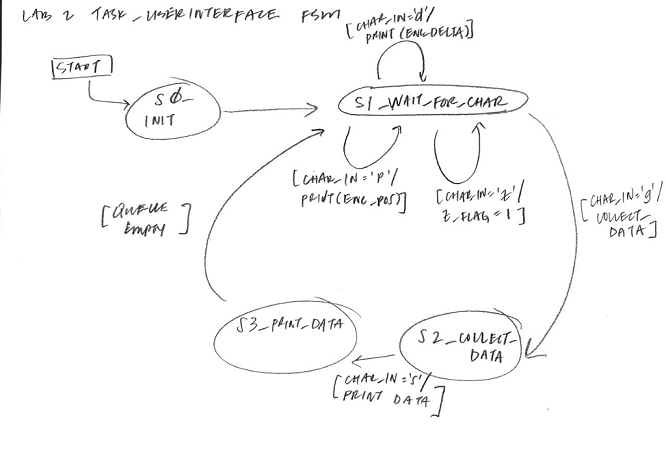 LAB 2 TASK_USERINTERFACE FSM
[CHAR_IN='d'/
PRINT(ENC_DELTA)]
START
S0_
INIT
S1_WAIT_FOR_CHAR
[CHAR_IN='P'/
PRINT(ENC_POS)]
[CHAR_IN='Z'/
Z_FLAG=1]
[CHAR_IN='g'/
COLLECT_
DATA]
[QUEUE
EMPTY]
S3_PRINT_DATA
S2_COLLECT_
DATA
[CHAR_IN='S'/
PRINT DATA]